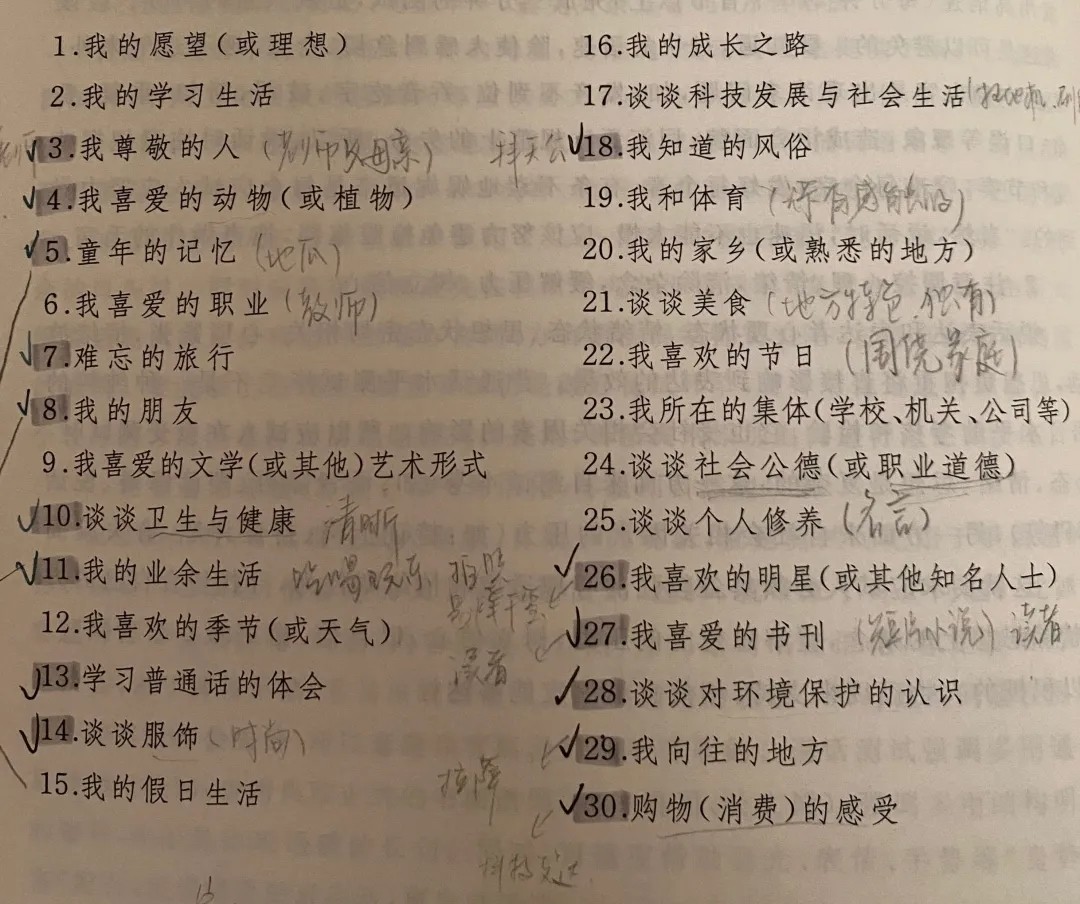 1.我的愿望(或理想)
2.我的学习生活
3.我尊敬的人
4.我喜爱的动物(或植物)
5.童年的记忆(地瓜)
6.我喜爱的职业(教师)
7.难忘的旅行
8.我的朋友
9.我喜爱的文学(或其他)艺术形式
10.谈谈卫生与健康 清晰
11.我的业余生活
12.我喜欢的季节(或天气)
13.学习普通话的体会
14.谈谈服饰(时尚)
15.我的假日生活
16.我的成长之路
17.谈谈科技发展与社会生活
18.我知道的风俗
19.我和体育
20.我的家乡(或熟悉的地方)
21.谈谈美食(地方特色.独有)
22.我喜欢的节日(围绕家庭)
23.我所在的集体(学校、机关、公司等)
24.谈谈社会公德(或职业道德)
25.谈谈个人修养(名言)
26.我喜欢的明星(或其他知名人士)
27.我喜爱的书刊(短篇小说)读者
28.谈谈对环境保护的认识
29.我向往的地方
30.购物(消费)的感受